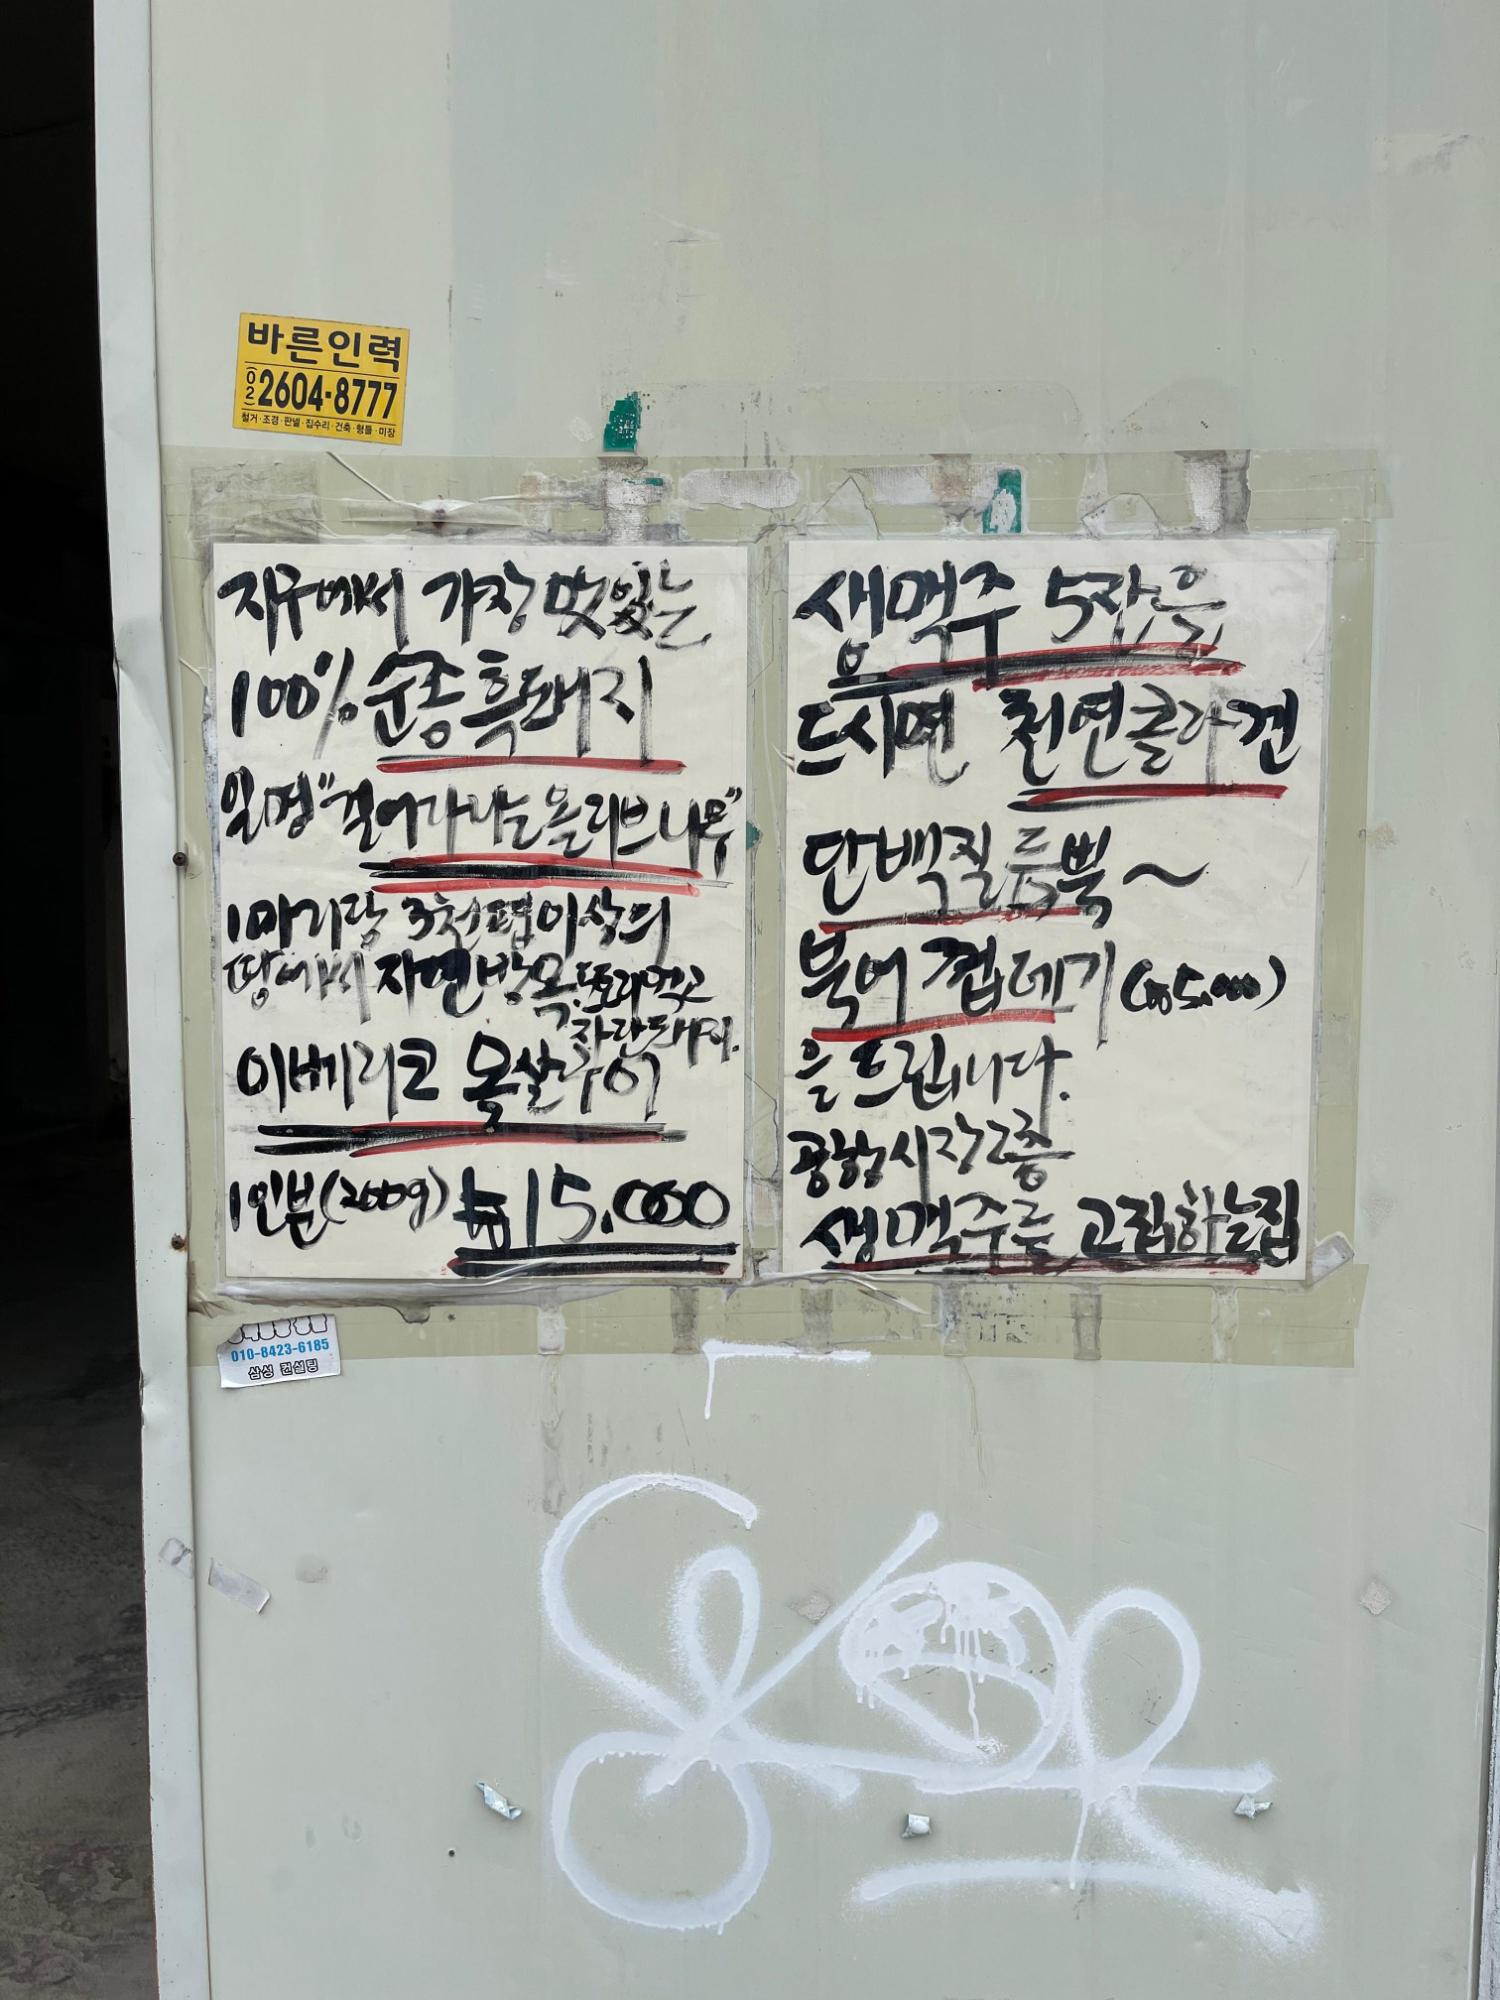 바른인력
(02)2604-8777
철거·조경·판넬·집수리·건축·형틀·미장
지구에서 가장 맛있는
100% 순종흑돼지
일명"걸어다니는올리브나무"
1마리당 3천평이상의
땅에서 자연방목.도토리먹고
자란돼지.
이베리코 목살구이
1인분(200g) ₩15,000
생맥주 5잔을
드시면 천연콜라겐
단백질듬뿍~
북어 껍데기(₩5,000)
을드립니다.
광장시장2층
생맥주를 고집하는집
010-8423-6185
삼성 컨설팅